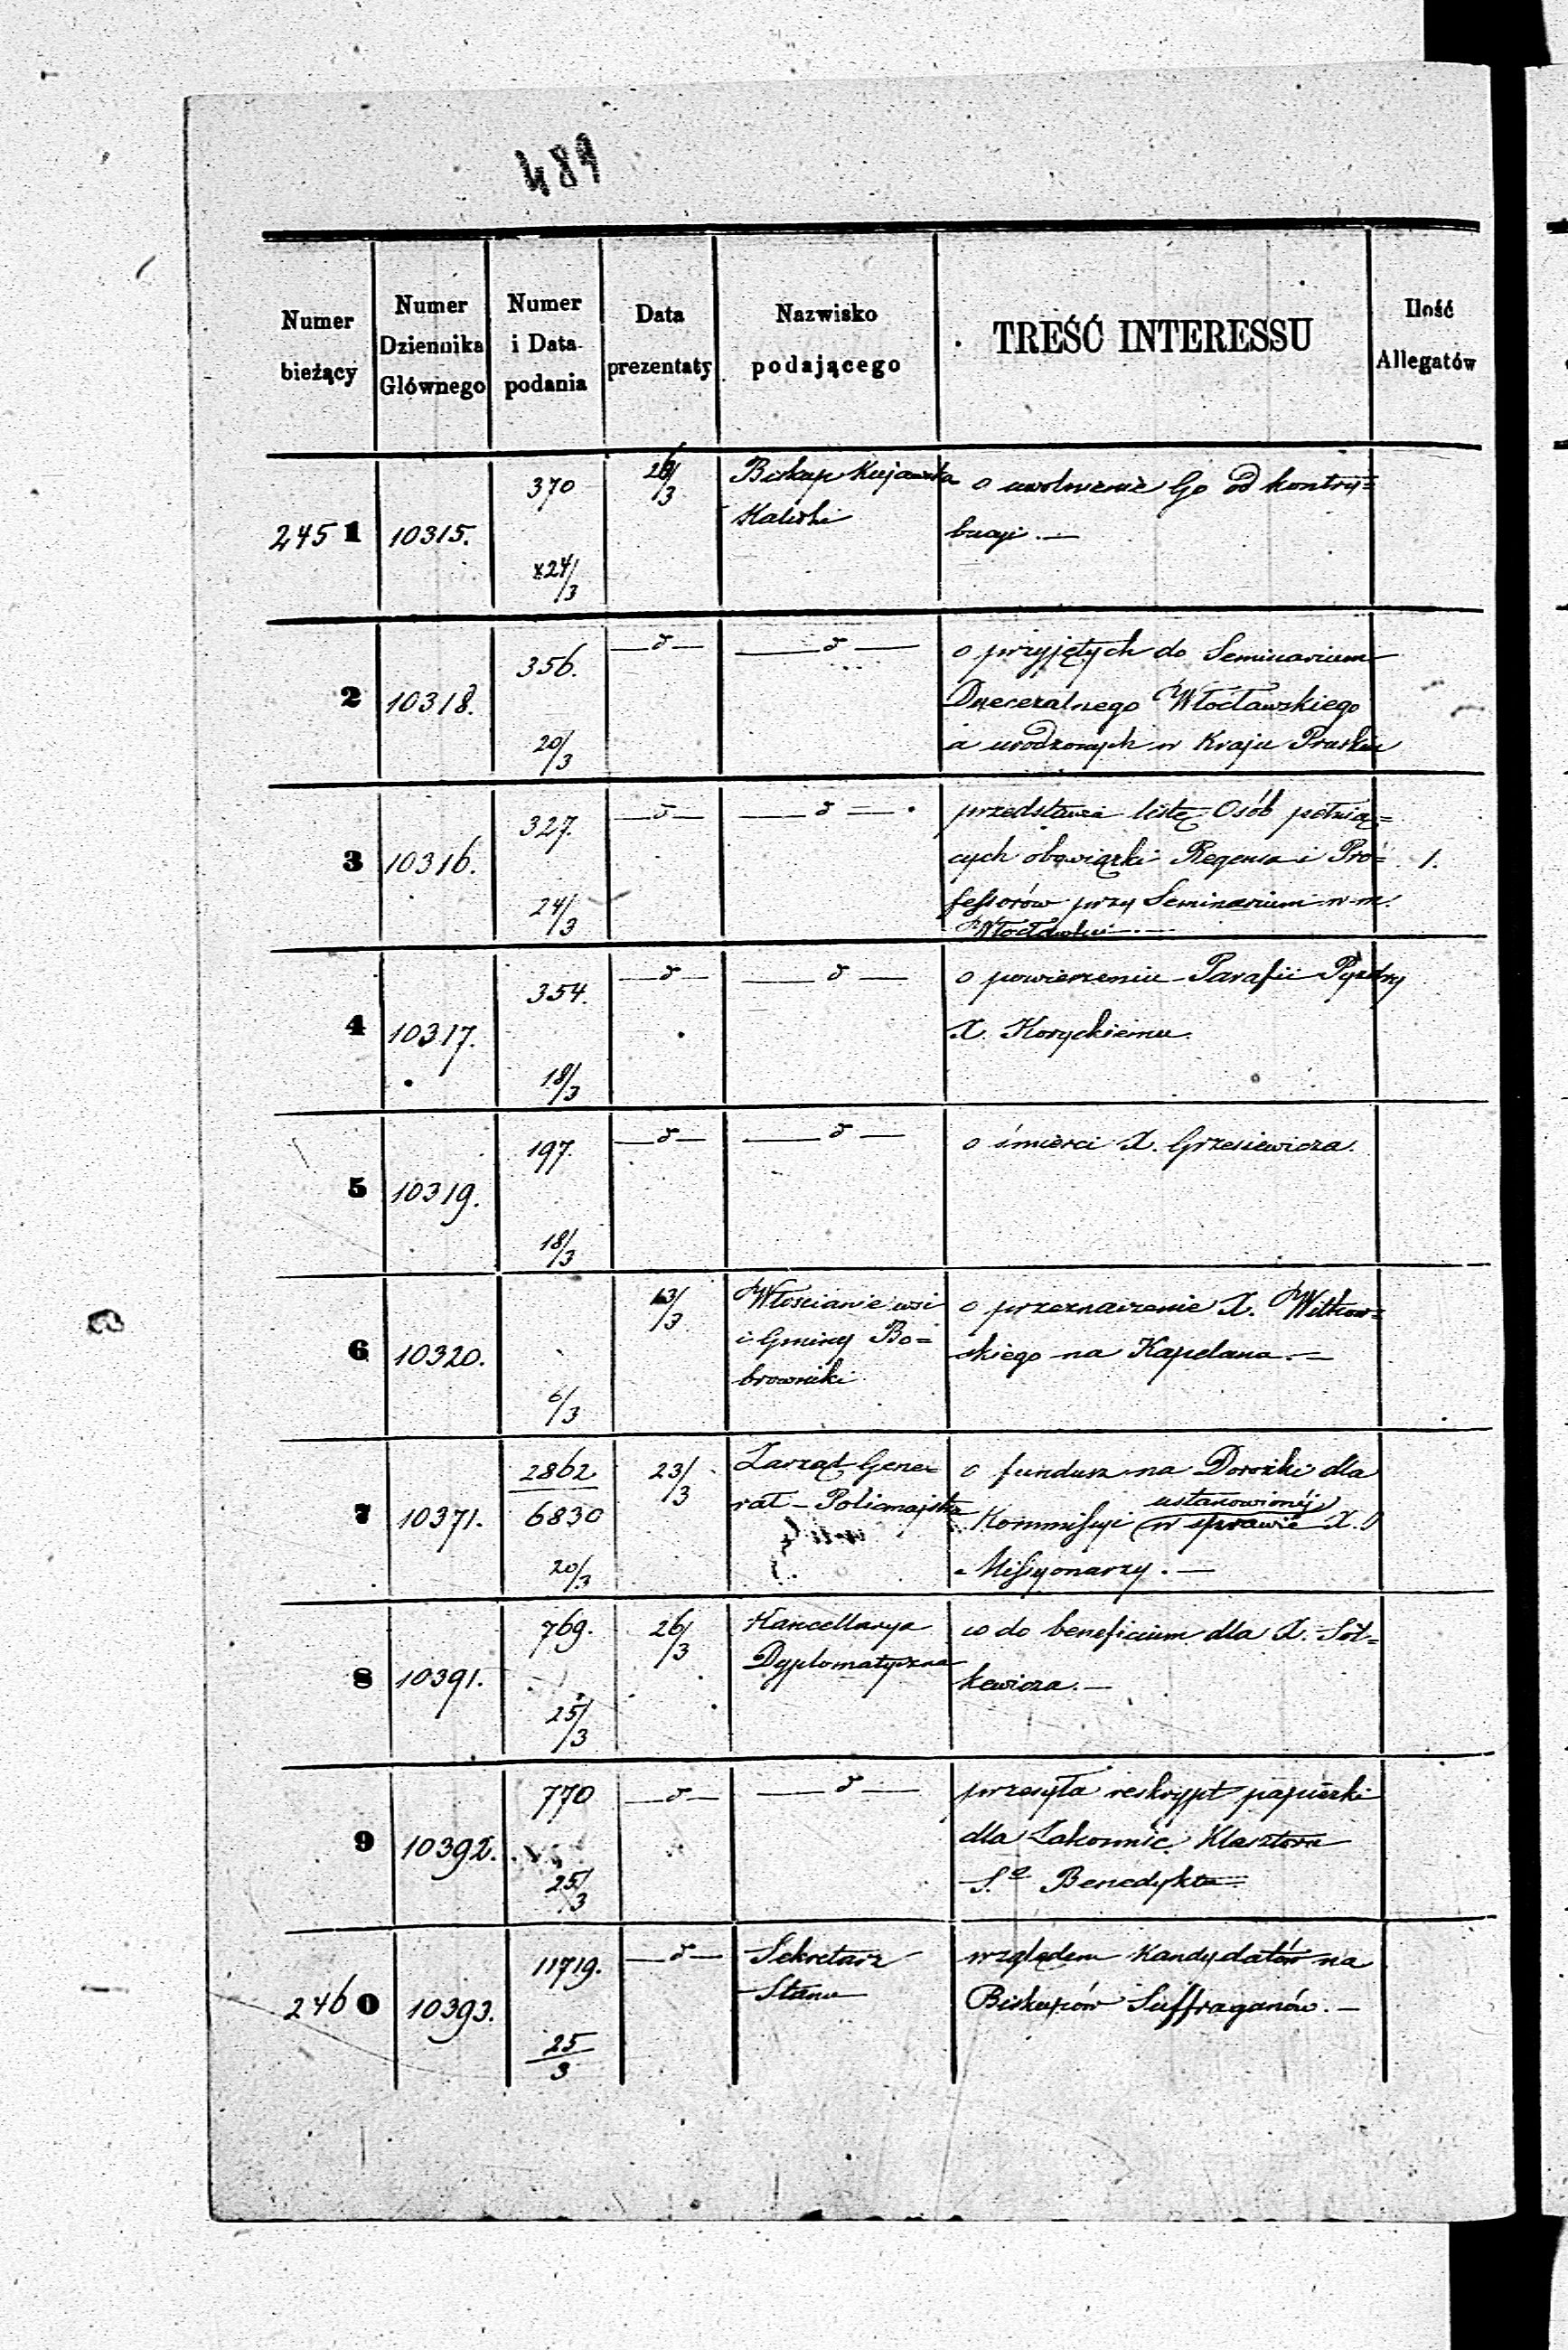 489
Numer bieżący | Numer Dziennika Głównego | Numer i Data podania | Data prezentaty | Nazwisko podającego | TREŚĆ INTERESSU | Ilość Allegatów
2451 | 10315. | 370 24/3 | 26/3 | Biskup Kujawsko | o uwolnienie Go od kontry=
Kaliski | bucyi. —
2 | 10318. | 356. 20/3 | —d— | —d— | o przyjętych do Seminarium
Dyecezalnego Włocławskiego
a urodzonych w Kraju Pruskim
3 | 10316. | 327. 24/3 | —d— | —d— | przedstawia listę Osób pełnią= | 1.
cych obowiązki Regensa i Pro=
fessorów przy Seminarium w m.
Włocławku —
4 | 10317. | 354. 18/3 | —d— | —d— | o powierzeniu Parafii Pyzdry
X. Koryckiemu.
5 | 10319. | 197. 18/3 | —d— | —d— | o śmierci X. Grzesiewicza.
6 | 10320. | 6/3 | 13/3 | Włościanie wsi | o przeznaczenie X. Witkow=
i Gminy Bo= | skiego na Kapelana. —
browniki
7 | 10371. | 2862 6830 20/3 | 23/3 | Zarząd Gene= | o fundusz na Dorożki dla
rał-Policmajstra | Kommissyi ustanowionéj w sprawie X.
Missyonarzy. —
8 | 10391. | 769. 25/3 | 26/3 | Kancellarya | co do beneficium dla X. Sot=
Dyplomatyczna | kewicza. —
9 | 10392. | 770 25/3 | —d— | —d— | przesyła reskrypt papiezki
dla Zakonnic Klasztoru
S.º Benedykta
2460 | 10393. | 11719. 25/3 | —d— | Sekretarz | względem Kandydatów na
Stanu | Biskupów Suffraganów. —